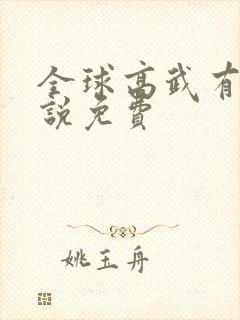 全球高武有
說免費
姚玉舟